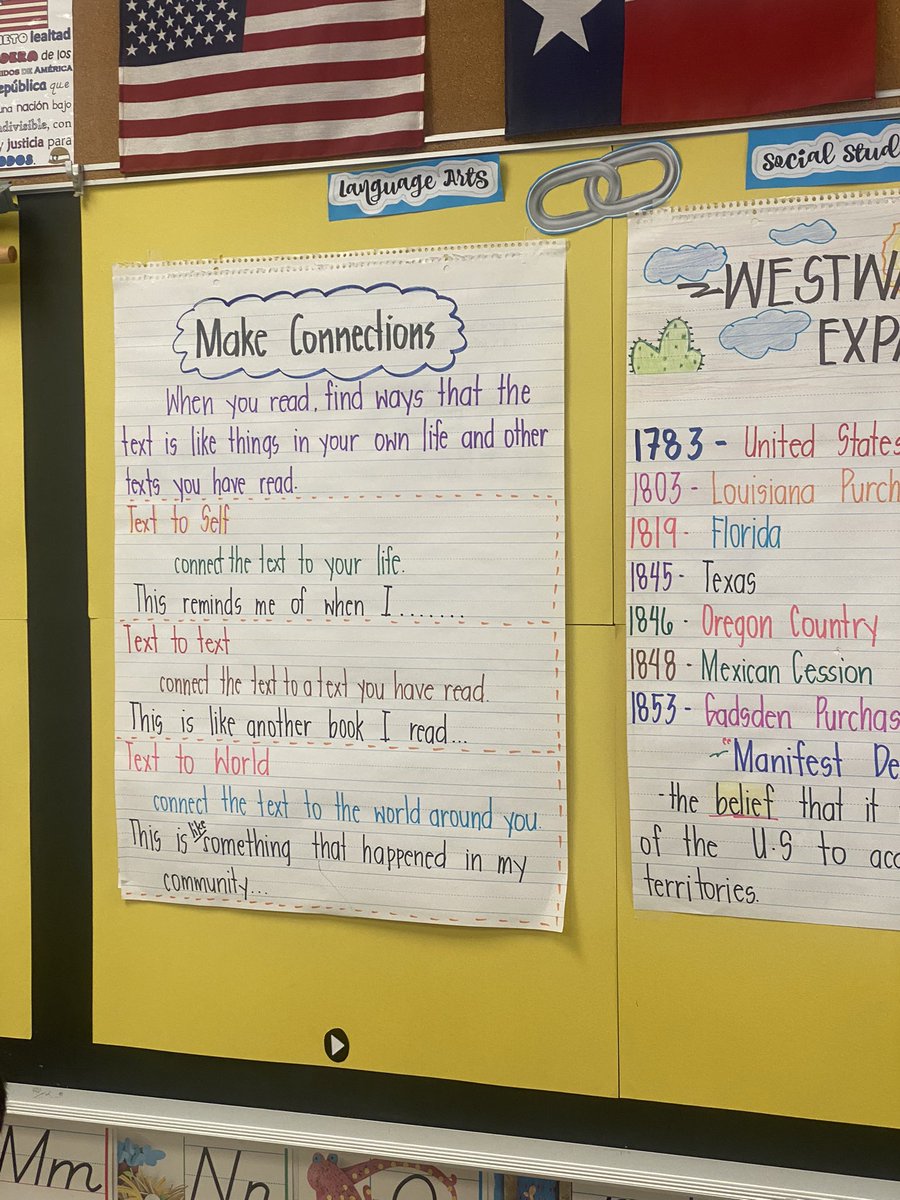 lealtad
de los
DE AMÉRICA
que
una nación bajo
indivisible, con
y justicia para
Language Arts
Social
Make Connections
When you read, find ways that the
text is like things in your own life and other
texts you have read.
Text to Self
connect the text to your life.
This reminds me of when I.......
Text to text
connect the text to a text you have read.
This is like another book I read...
Text to World
connect the text to the world around you.
This is like something that happened in my
community...
1783 - United States
1803 - Louisiana
1819 - Florida
1845 - Texas
1846 - Oregon Country
1848 - Mexican Cession
1853 - Gadsden
"Manifest
-the belief that it
of the U.S to
territories.
Mm
Nn